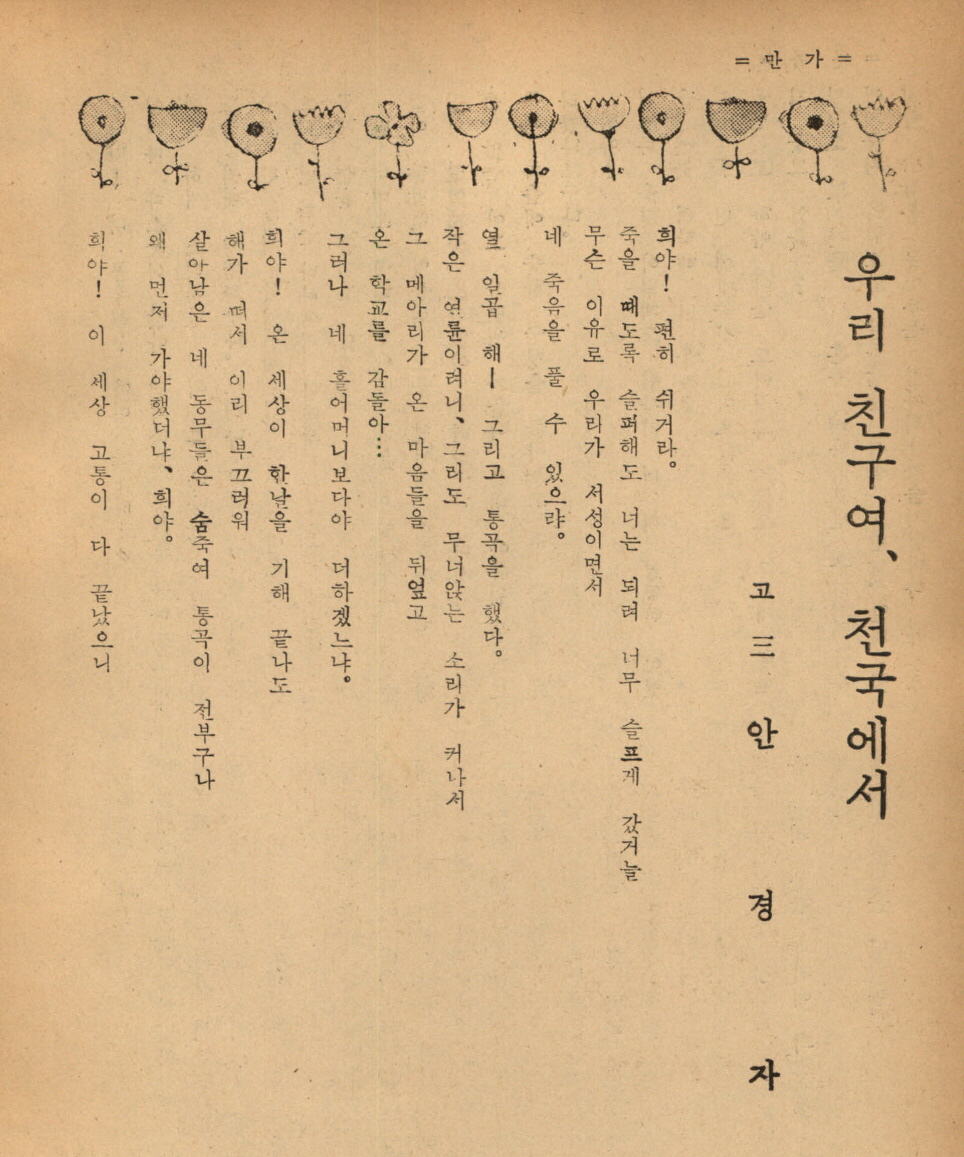 = 만 가 =
우리 친구여、 천국에서
고 三 안 경 자
희야! 편히 쉬거라。
죽을 때도록 슬퍼해도 너는 되려 너무 슬프게 갔거늘
무슨 이유로 우리가 서성이면서
네 죽음을 풀 수 있으랴。
열 일곱 해ㅡ 그리고 통곡을 했다。
작은 연륜이려니、그리도 무너앉는 소리가 커나서
그 메아리가 온 마음들을 뒤엎고
온 학교를 감돌아…
그러나 네 홀어머니보다야 더하겠느냐。
희야! 온 세상이 한날을 기해 끝나도
해가 떠서 이리 부끄러워
살아남은 네 동무들은 숨죽여 통곡이 전부구나
왜 먼저 가야했더냐、희야。
희야! 이 세상 고통이 다 끝났으니